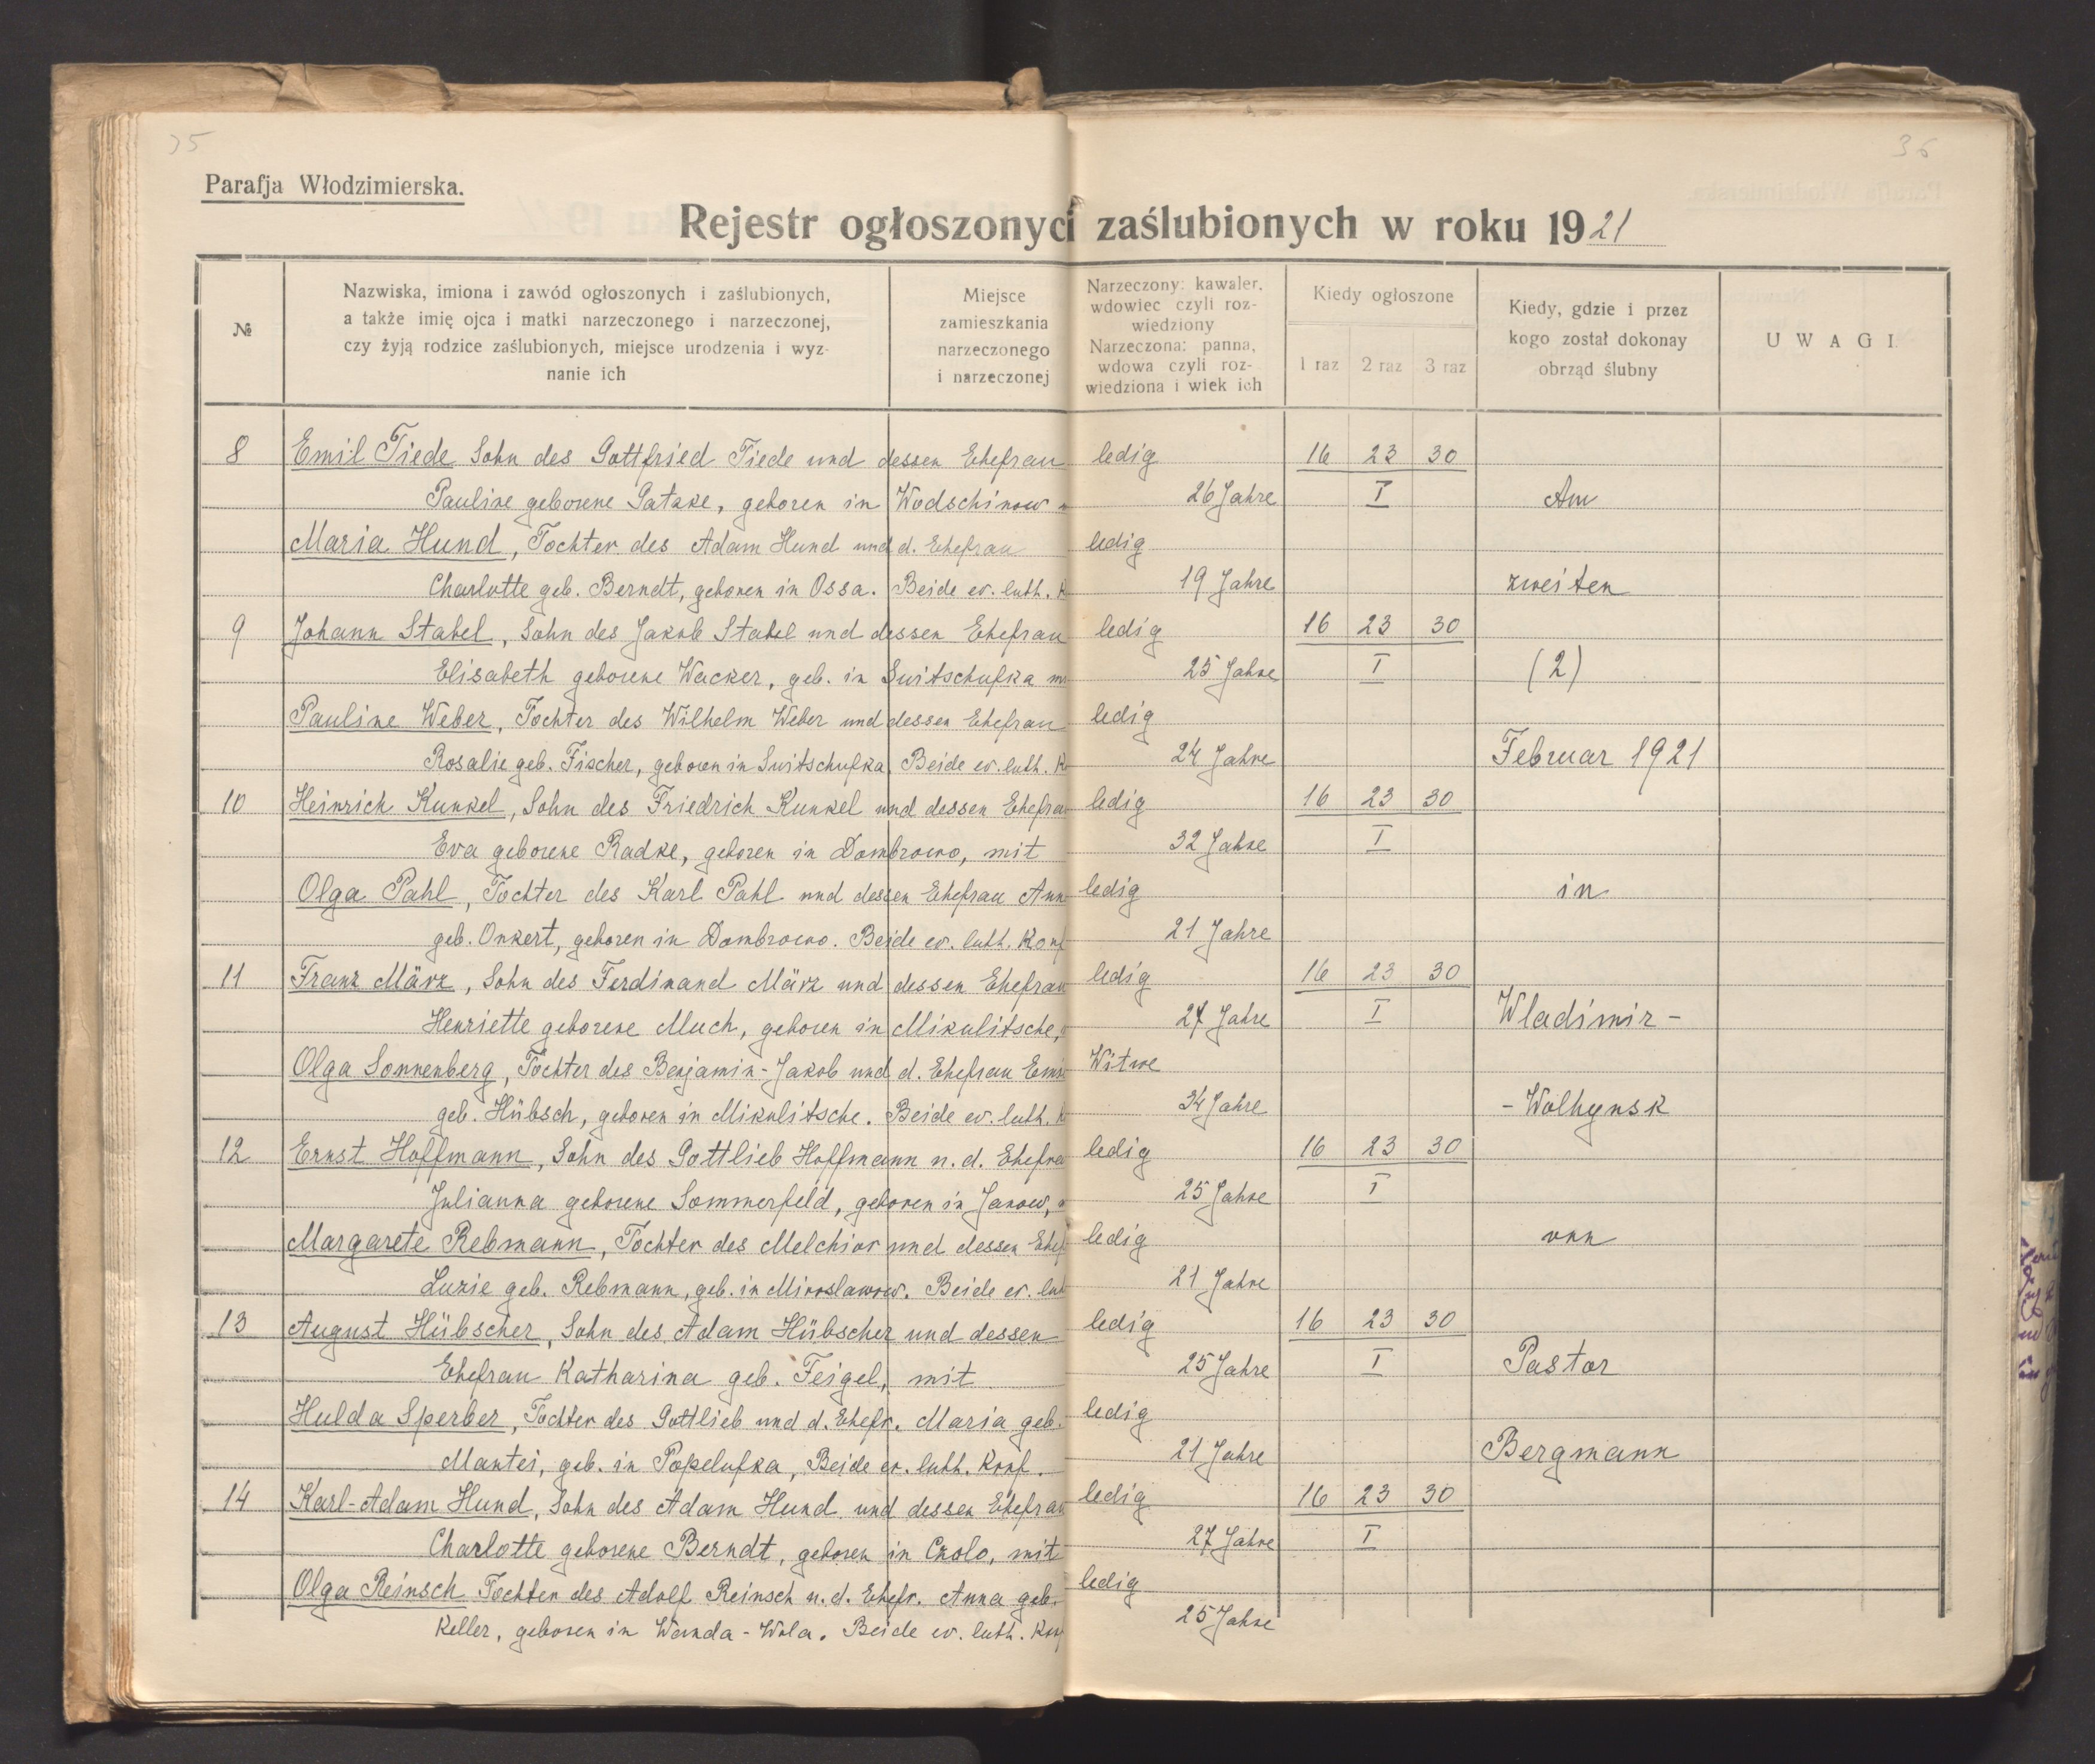 35
36
Parafja Włodzimierska.
Rejestr ogłoszonyc i zaślubionych w roku 1921
№
Nazwiska, imiona i zawód ogłoszonych i zaślubionych,
a także imię ojca i matki narzeczonego i narzeczonej,
czy żyją rodzice zaślubionych, miejsce urodzenia i wyz-
nanie ich
Miejsce
zamieszkania
narzeczonego
i narzeczonej
Narzeczony: kawaler,
wdowiec czyli roz-
wiedziony
Narzeczona: panna,
wdowa czyli roz-
wiedziona i wiek ich
Kiedy ogłoszone
1 raz 2 raz 3 raz
Kiedy, gdzie i przez
kogo został dokonay
obrząd ślubny
UWAGI
8 Emil Tiede Sohn des Gottfried Tiede und dessen Ehefrau ledig 16 23 30
Pauline geborene Gatzke, geboren in Wodschinow 26 Jahre I Am
Maria Hund, Tochter des Adam Hund und d. Ehefrau ledig
Charlotte geb. Berndt, geboren in Ossa. Beide ev. luth. K 19 Jahre zweiten
9 Johann Stabel, Sohn des Jakob Stabel und dessen Ehefrau ledig 16 23 30
Elisabeth geborene Wacker, geb. in Switschufka m 25 Jahre I (2)
Pauline Weber, Tochter des Wilhelm Weber und dessen Ehefrau ledig
Rosalie geb. Fischer, geboren in Switschufka. Beide ev. luth. K 24 Jahre Februar 1921
10 Heinrich Kunkel, Sohn des Friedrich Kunkel und dessen Ehefrau ledig 16 23 30
Eva geborene Radke, geboren in Dombrowo, mit 32 Jahre I
Olga Pahl, Tochter des Karl Pahl und dessen Ehefrau Ann ledig in
geb. Onkert, geboren in Dombrowo. Beide ev. luth. Konf 21 Jahre
11 Franz März, Sohn des Ferdinand März und dessen Ehefrau ledig 16 23 30
Henriette geborene Much, geboren in Mikulitsche, 27 Jahre I Wladimir-
Olga Sonnenberg, Tochter des Benjamin-Jakob und d. Ehefrau Emi Witwe
geb. Hübsch, geboren in Mikulitsche. Beide ev. luth. K 34 Jahre -Wolhynsk
12 Ernst Hoffmann, Sohn des Gottlieb Hoffmann u. d. Ehefra ledig 16 23 30
Julianna geborene Sommerfeld, geboren in Janow, 25 Jahre I
Margarete Rebmann, Tochter des Melchior und dessen Ehef ledig von
Luzie geb. Rebmann, geb. in Miroslawow. Beide ev. lut 21 Jahre
13 August Hübscher, Sohn des Adam Hübscher und dessen ledig 16 23 30
Ehefrau Katharina geb. Feigel, mit 25 Jahre I Pastor
Hulda Sperber, Tochter des Gottlieb und d. Ehefr. Maria geb. ledig
Mantei, geb. in Popelufka, Beide ev. luth. Konf. 21 Jahre Bergmann
14 Karl-Adam Hund, Sohn des Adam Hund und dessen Ehefrau ledig 16 23 30
Charlotte geborene Berndt, geboren in Czolo, mit 27 Jahre I
Olga Reinsch Tochter des Adolf Reinsch u. d. Ehefr. Anna geb. ledig
Keller, geboren in Wanda-Wola. Beide ev. luth. Konf 25 Jahre